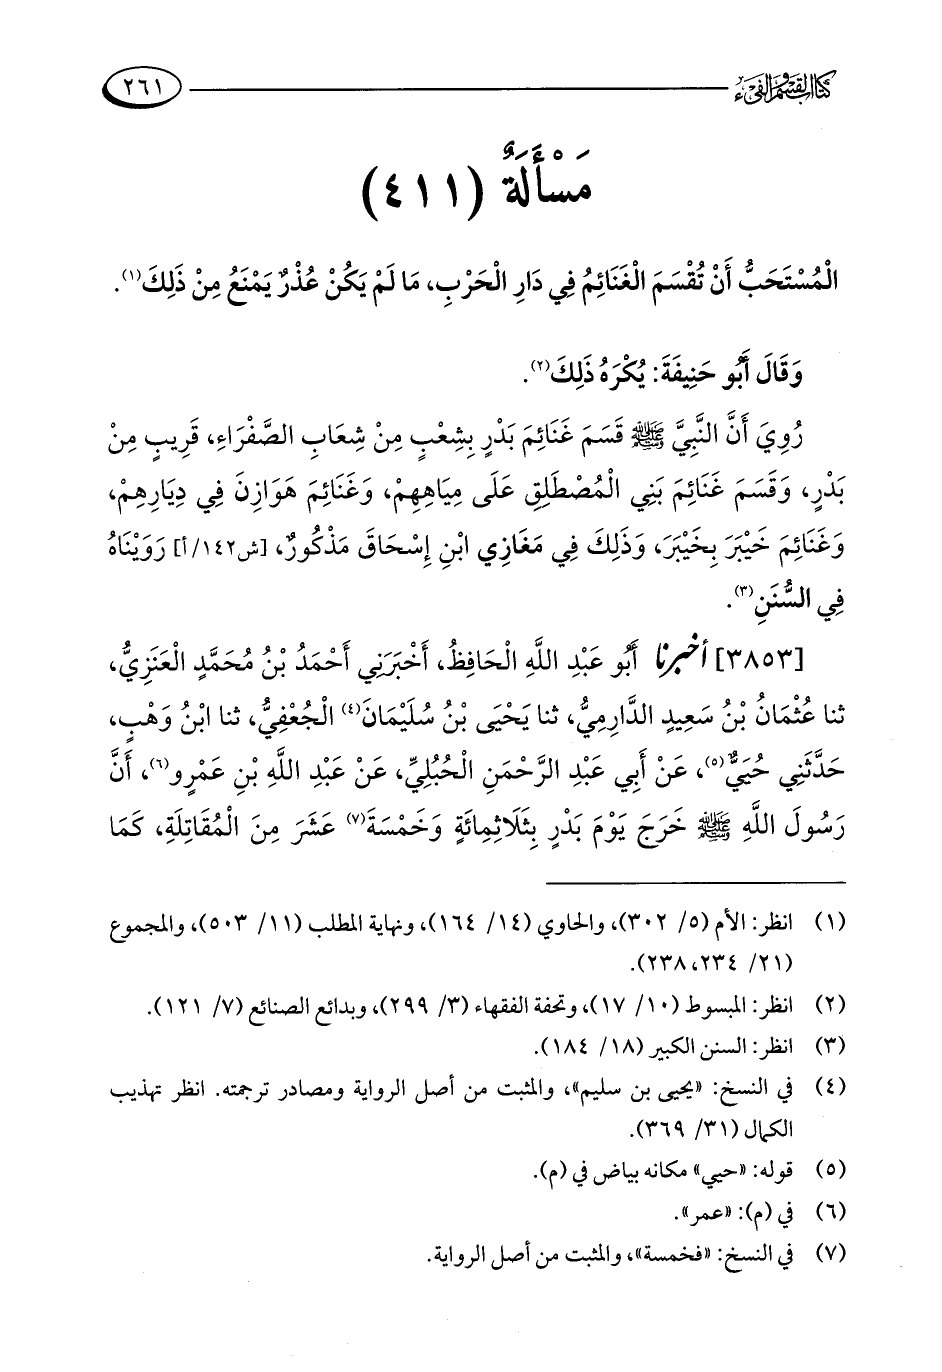 كتاب القسم والفيء
٢٦١
مَسْأَلَةٌ (٤١١)
الْمُسْتَحَبُّ أَنْ تُقْسَمَ الْغَنَائِمُ فِي دَارِ الْحَرْبِ، مَا لَمْ يَكُنْ عُذْرٌ يَمْنَعُ مِنْ ذَلِكَ(١).
وَقَالَ أَبُو حَنِيفَةَ: يُكْرَهُ ذَلِكَ(٢).
رُوِيَ أَنَّ النَّبِيَّ ﷺ قَسَمَ غَنَائِمَ بَدْرٍ بِشِعْبٍ مِنْ شِعَابِ الصَّفْرَاءِ، قَرِيبٍ مِنْ
بَدْرٍ، وَقَسَمَ غَنَائِمَ بَنِي الْمُصْطَلِقِ عَلَى مِيَاهِهِمْ، وَغَنَائِمَ هَوَازِنَ فِي دِيَارِهِمْ،
وَغَنَائِمَ خَيْبَرَ بِخَيْبَرَ، وَذَلِكَ فِي مَغَازِي ابْنِ إِسْحَاقَ مَذْكُورٌ، [ش١٤٢/أ] رَوَيْنَاهُ
فِي السُّنَنِ(٣).
[٣٨٥٣] أخبرنا أَبُو عَبْدِ اللَّهِ الْحَافِظُ، أَخْبَرَنِي أَحْمَدُ بْنُ مُحَمَّدٍ الْعَنَزِيُّ،
ثنا عُثْمَانُ بْنُ سَعِيدٍ الدَّارِمِيُّ، ثنا يَحْيَى بْنُ سُلَيْمَانَ(٤) الْجُعْفِيُّ، ثنا ابْنُ وَهْبٍ،
حَدَّثَنِي حُيَيٌّ(٥)، عَنْ أَبِي عَبْدِ الرَّحْمَنِ الْحُبُلِيِّ، عَنْ عَبْدِ اللَّهِ بْنِ عَمْرٍو(٦)، أَنَّ
رَسُولَ اللَّهِ ﷺ خَرَجَ يَوْمَ بَدْرٍ بِثَلَاثِمِائَةٍ وَخَمْسَةَ(٧) عَشَرَ مِنَ الْمُقَاتِلَةِ، كَمَا
(١) انظر: الأم (٥/ ٣٠٢)، والحاوي (١٤/ ١٦٤)، ونهاية المطلب (١١/ ٥٠٣)، والمجموع
(٢١/ ٢٣٤، ٢٣٨).
(٢) انظر: المبسوط (١٠/ ١٧)، وتحفة الفقهاء (٣/ ٢٩٩)، وبدائع الصنائع (٧/ ١٢١).
(٣) انظر: السنن الكبير (١٨/ ١٨٤).
(٤) في النسخ: «يحيى بن سليم»، والمثبت من أصل الرواية ومصادر ترجمته. انظر تهذيب
الكمال (٣١/ ٣٦٩).
(٥) قوله: «حيي» مكانه بياض في (م).
(٦) في (م): «عمر».
(٧) في النسخ: «فخمسة»، والمثبت من أصل الرواية.